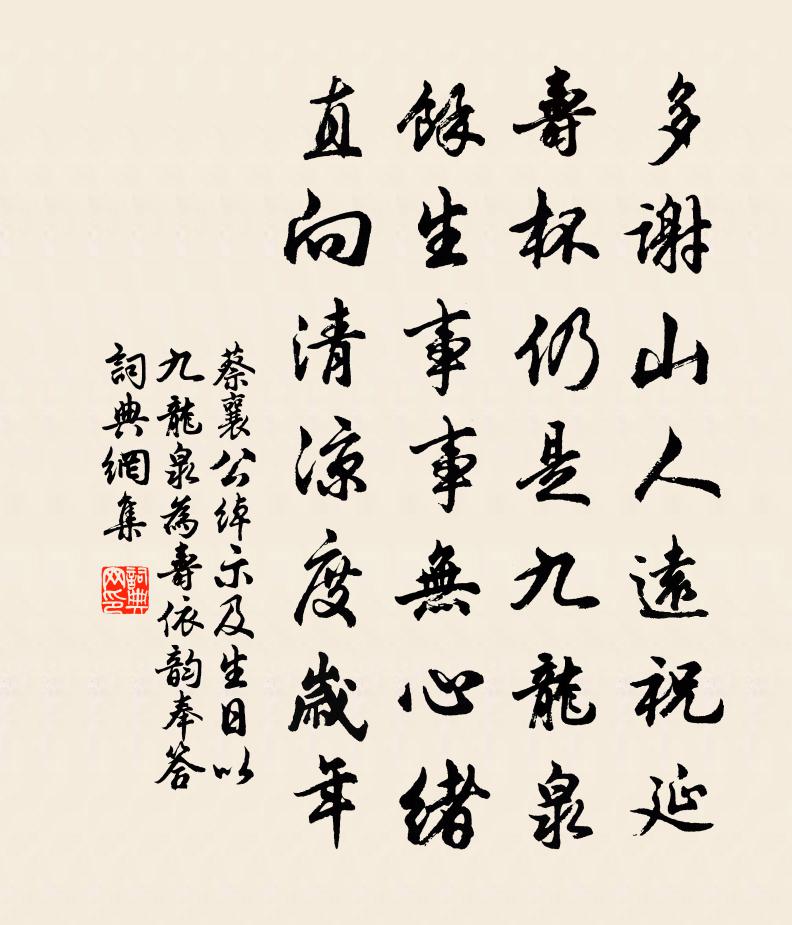 多謝山人遠祝延
壽杯仍是九龍泉
餘生事事無心緒
直向清涼度歲年
蔡襄公綽示及生日以
九龍泉為壽依韵奉答
詞典網集
詞典
网印